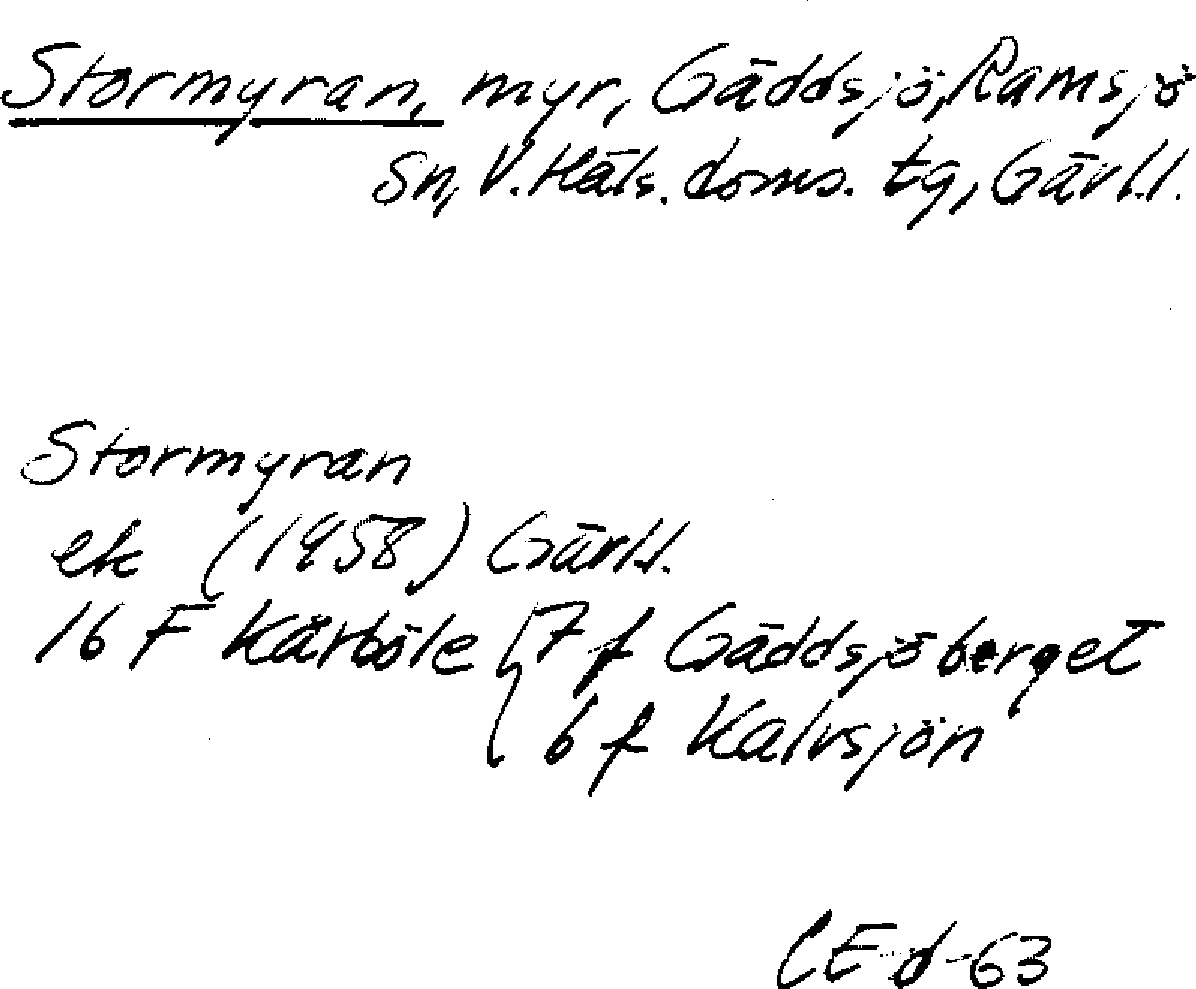 Stormyran, myr, Gäddsjö, Ramsjö
sn, V. Häls. doms. tg, Gävl.l.
Stormyran
ek (1958) Gävl.l.
16 F Kårböle { 7 f Gäddsjöberget
6 f Kalvsjön
CE-d-63